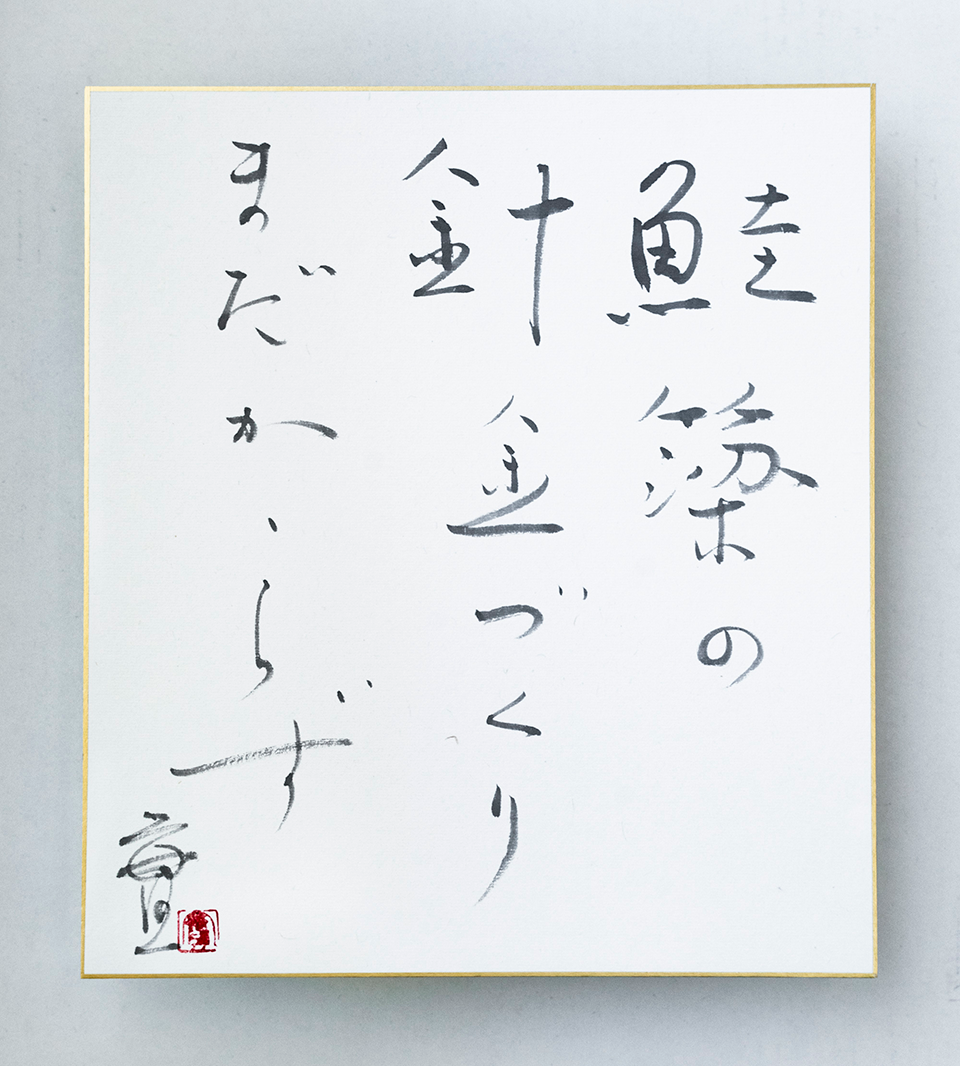 鮭簗の
針金づくり
まだかゝらず